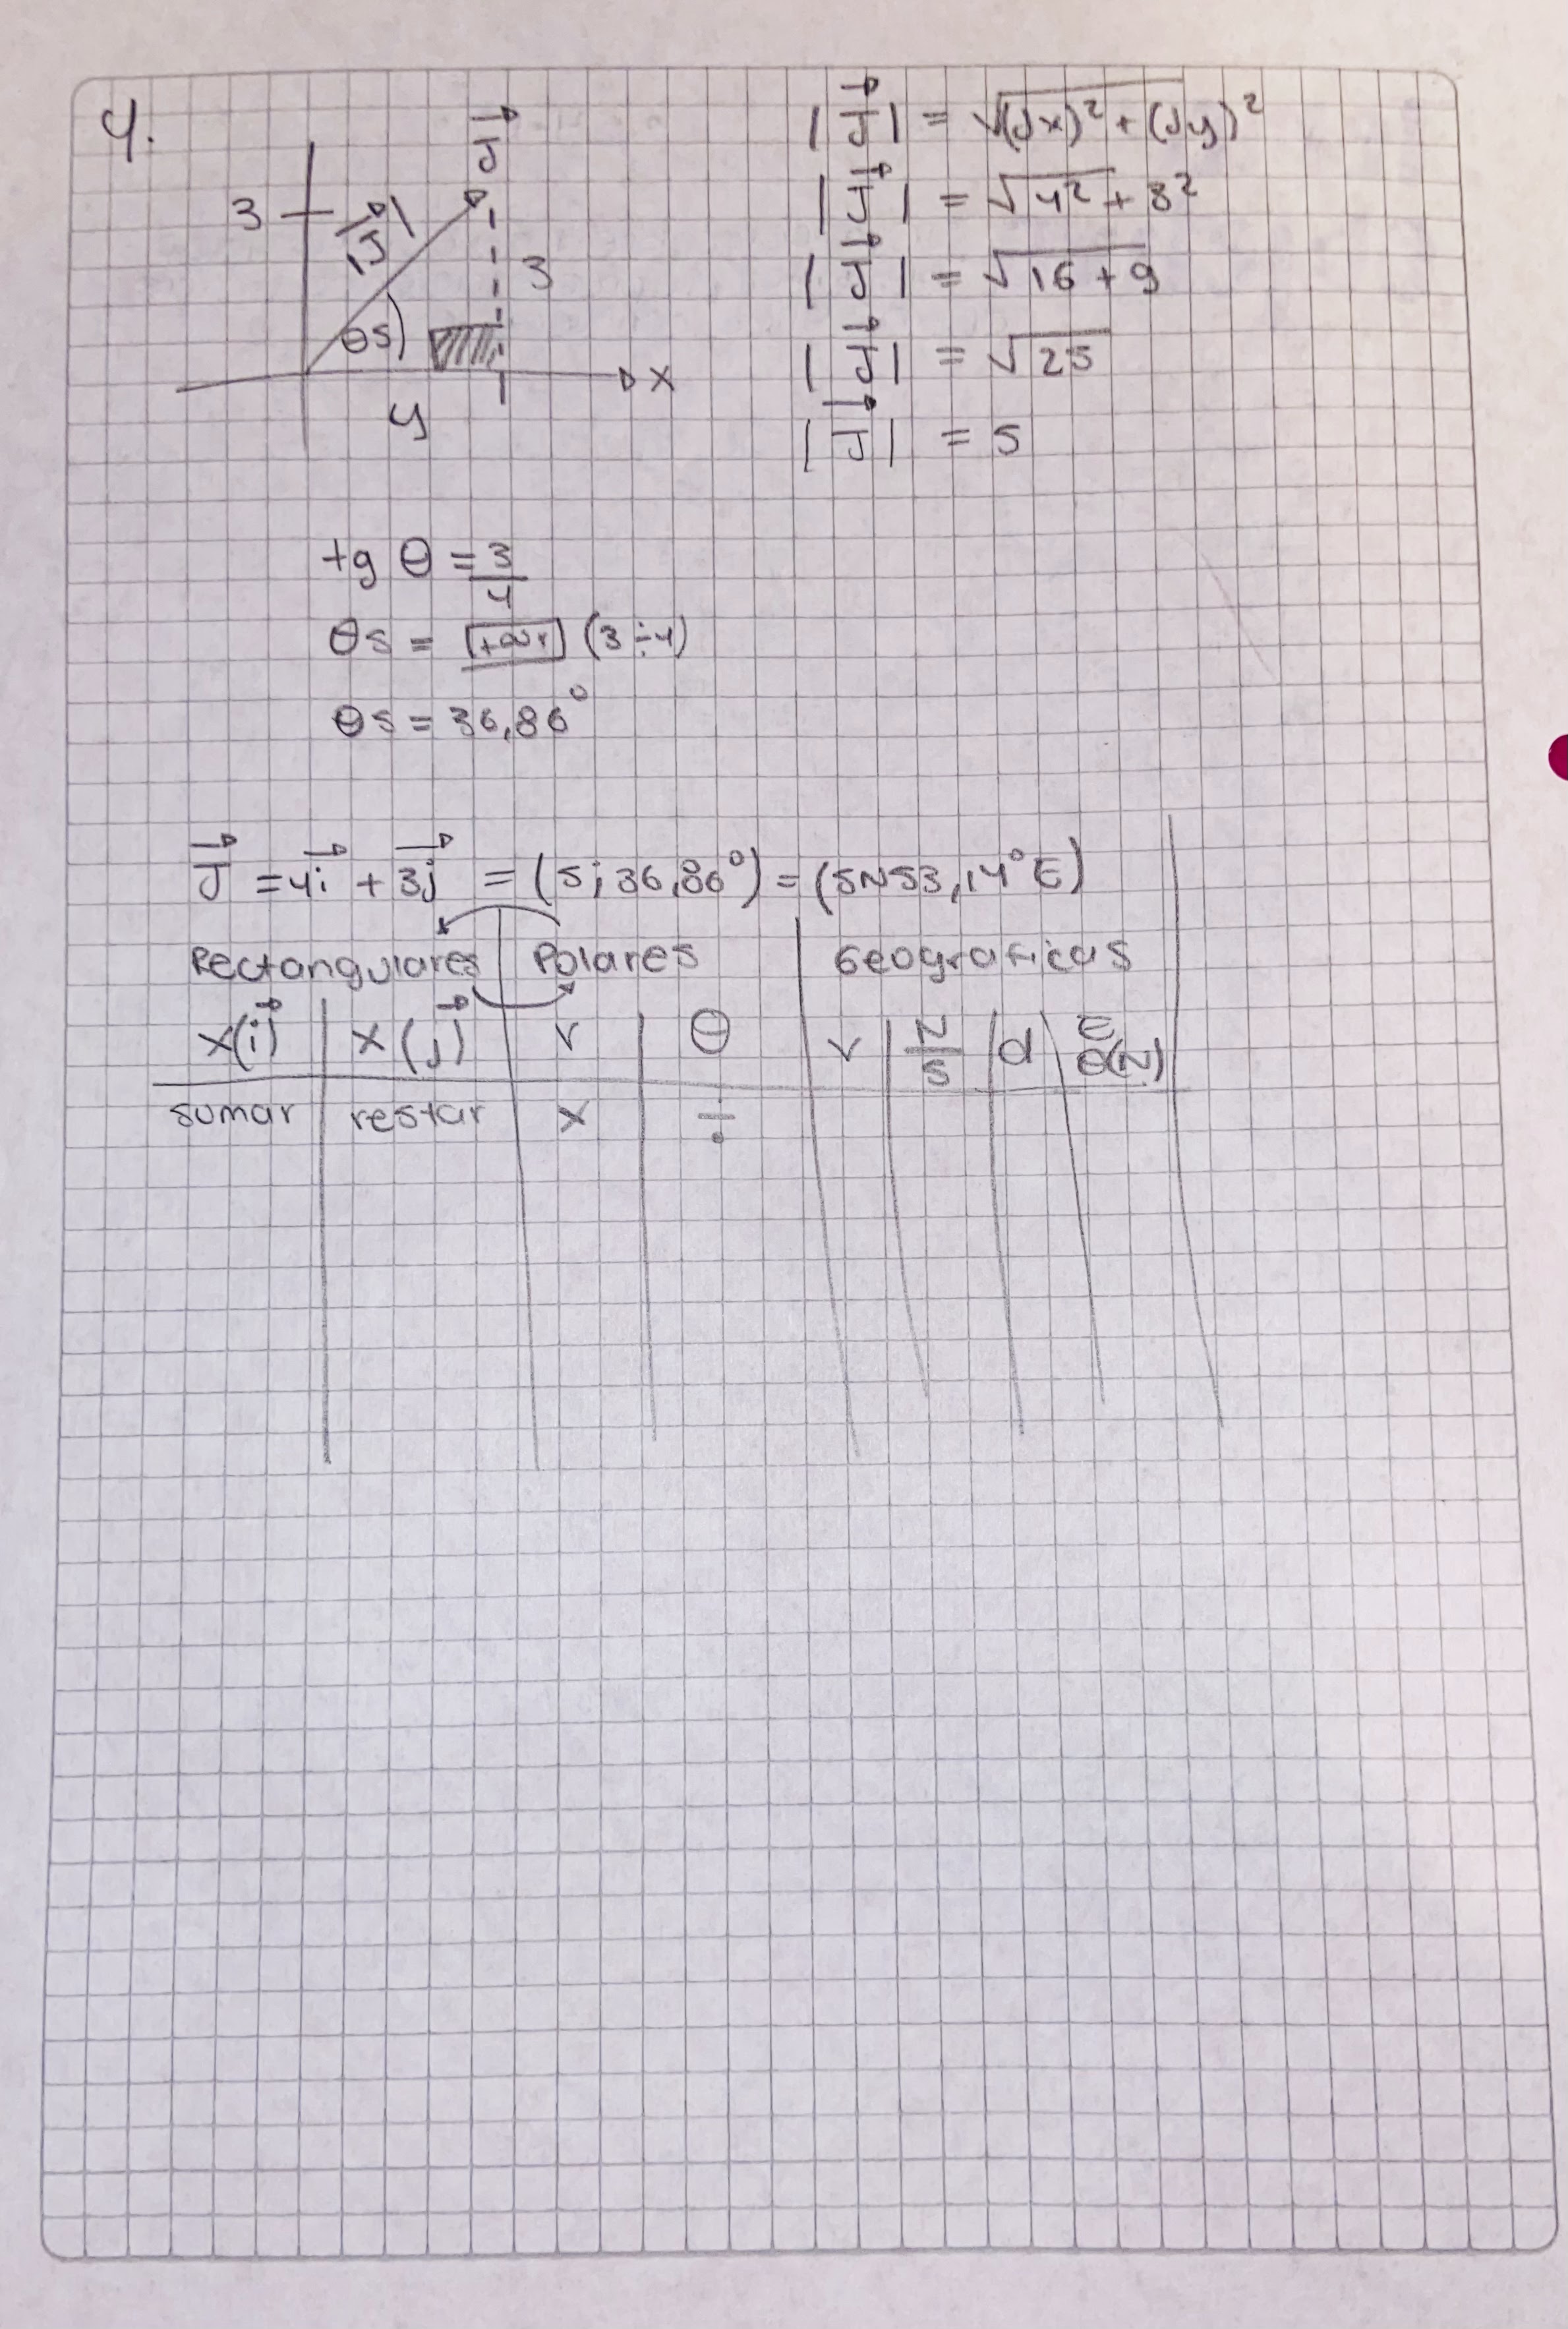 4.
J⃗
3
|J⃗|
3
θs
x
4
|J⃗| = √(Jx)² + (Jy)²
|J⃗| = √4² + 3²
|J⃗| = √16 + 9
|J⃗| = √25
|J⃗| = 5
tg θ = 3/4
θs = (3÷4)
θs = 36,86°
J⃗ = 4i⃗ + 3j⃗ = (5; 36,86°) = (5N53,14°E)
Rectangulares Polares Geograficas
x(i⃗) x(j⃗) r θ r N/S d E θ(N)
sumar restar x ÷